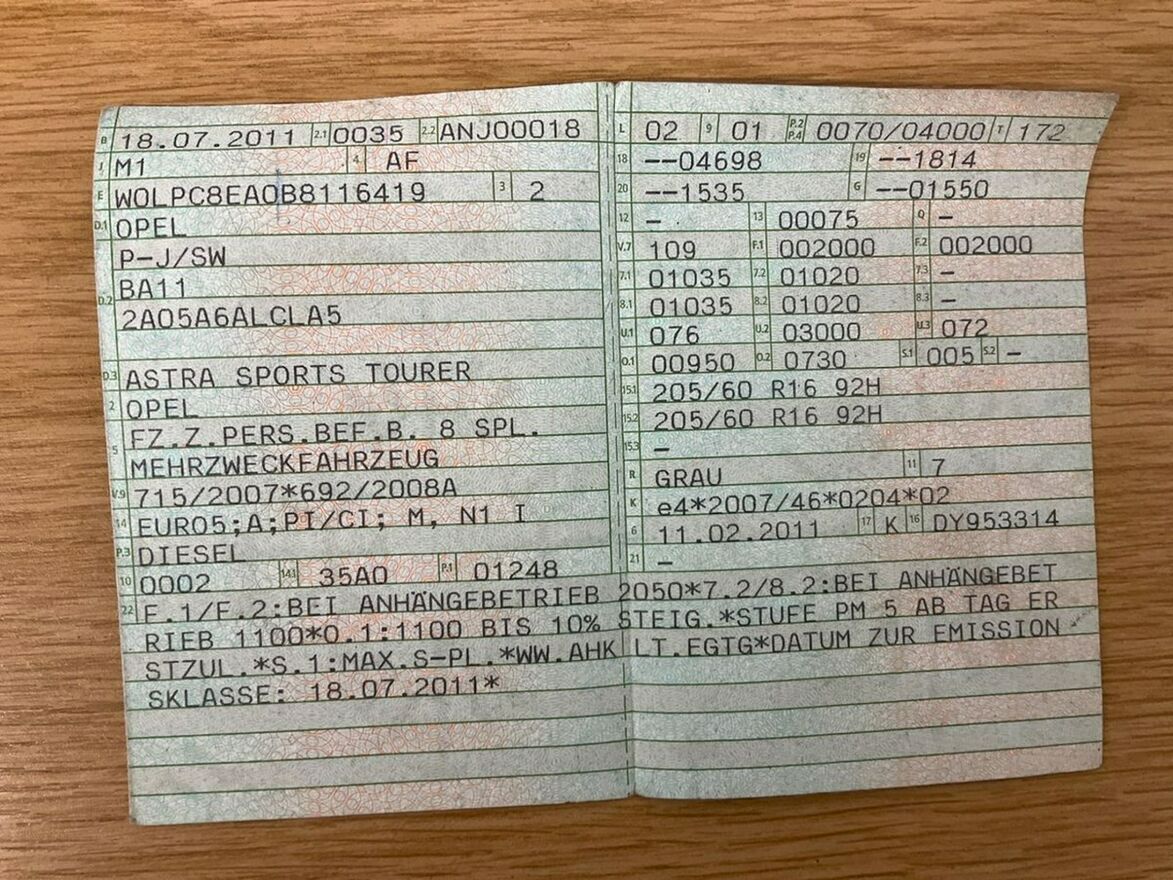 B 18.07.2011 2.1 0035 2.2 ANJ00018 L 02 9 01 P.2 P.4 0070/04000 T 172
J M1 4 AF 18 --04698 19 --1814
E W0LPC8EA0B8116419 3 2 20 --1535 G --01550
D.1 OPEL 12 - 13 00075 Q -
P-J/SW V.7 109 F.1 002000 F.2 002000
D.2 BA11 7.1 01035 7.2 01020 7.3 -
2A05A6ALCLA5 8.1 01035 8.2 01020 8.3 -
U.1 076 U.2 03000 U.3 072
D.3 ASTRA SPORTS TOURER O.1 00950 O.2 0730 S.1 005 S.2 -
2 OPEL 15.1 205/60 R16 92H
5 FZ.Z.PERS.BEF.B. 8 SPL. 15.2 205/60 R16 92H
MEHRZWECKFAHRZEUG 15.3 -
V.9 715/2007*692/2008A R GRAU 11 7
14 EURO5;A;PI/CI; M, N1 I K e4*2007/46*0204*02
P.3 DIESEL 6 11.02.2011 17 K 16 DY953314
10 0002 14.1 35A0 P.1 01248 21 -
22 F.1/F.2:BEI ANHÄNGEBETRIEB 2050*7.2/8.2:BEI ANHÄNGEBET
RIEB 1100*O.1:1100 BIS 10% STEIG.*STUFE PM 5 AB TAG ER
STZUL.*S.1:MAX.S-PL.*WW.AHK LT.EGTG*DATUM ZUR EMISSION
SKLASSE: 18.07.2011*